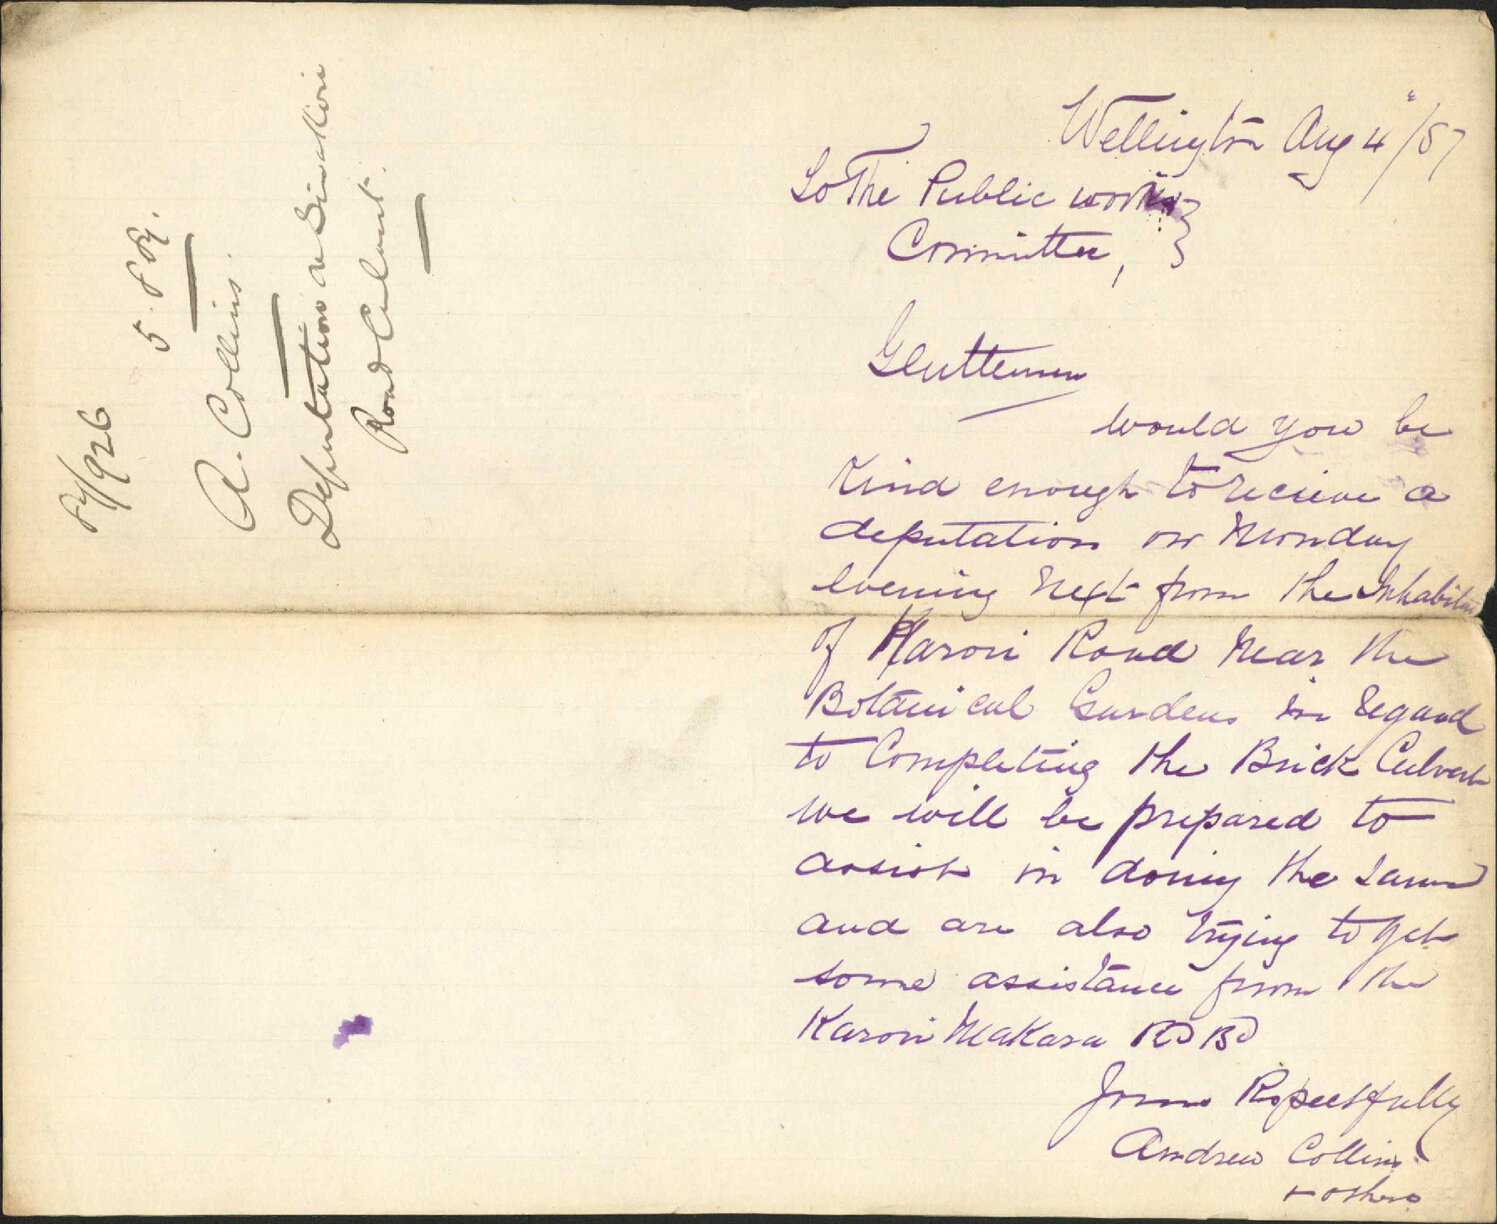 87/926
5. 8. 87.
A. Collins.
Deputation re
Road Culvert.
Wellington Aug 4th/87
To The Public works
Committee,
Gentlemen
would you be
Kind enough to recieve a
deputation on Monday
evening Next from the Inhabitants
of Karori Road Near the
Botanical Gardens in regard
to Completing the Brick Culvert
we will be prepared to
assist in doing the same
and are also trying to get
some assistance from the
Karori Makara Rd Bd
Yours Respectfully
Andrew Collins
+ others